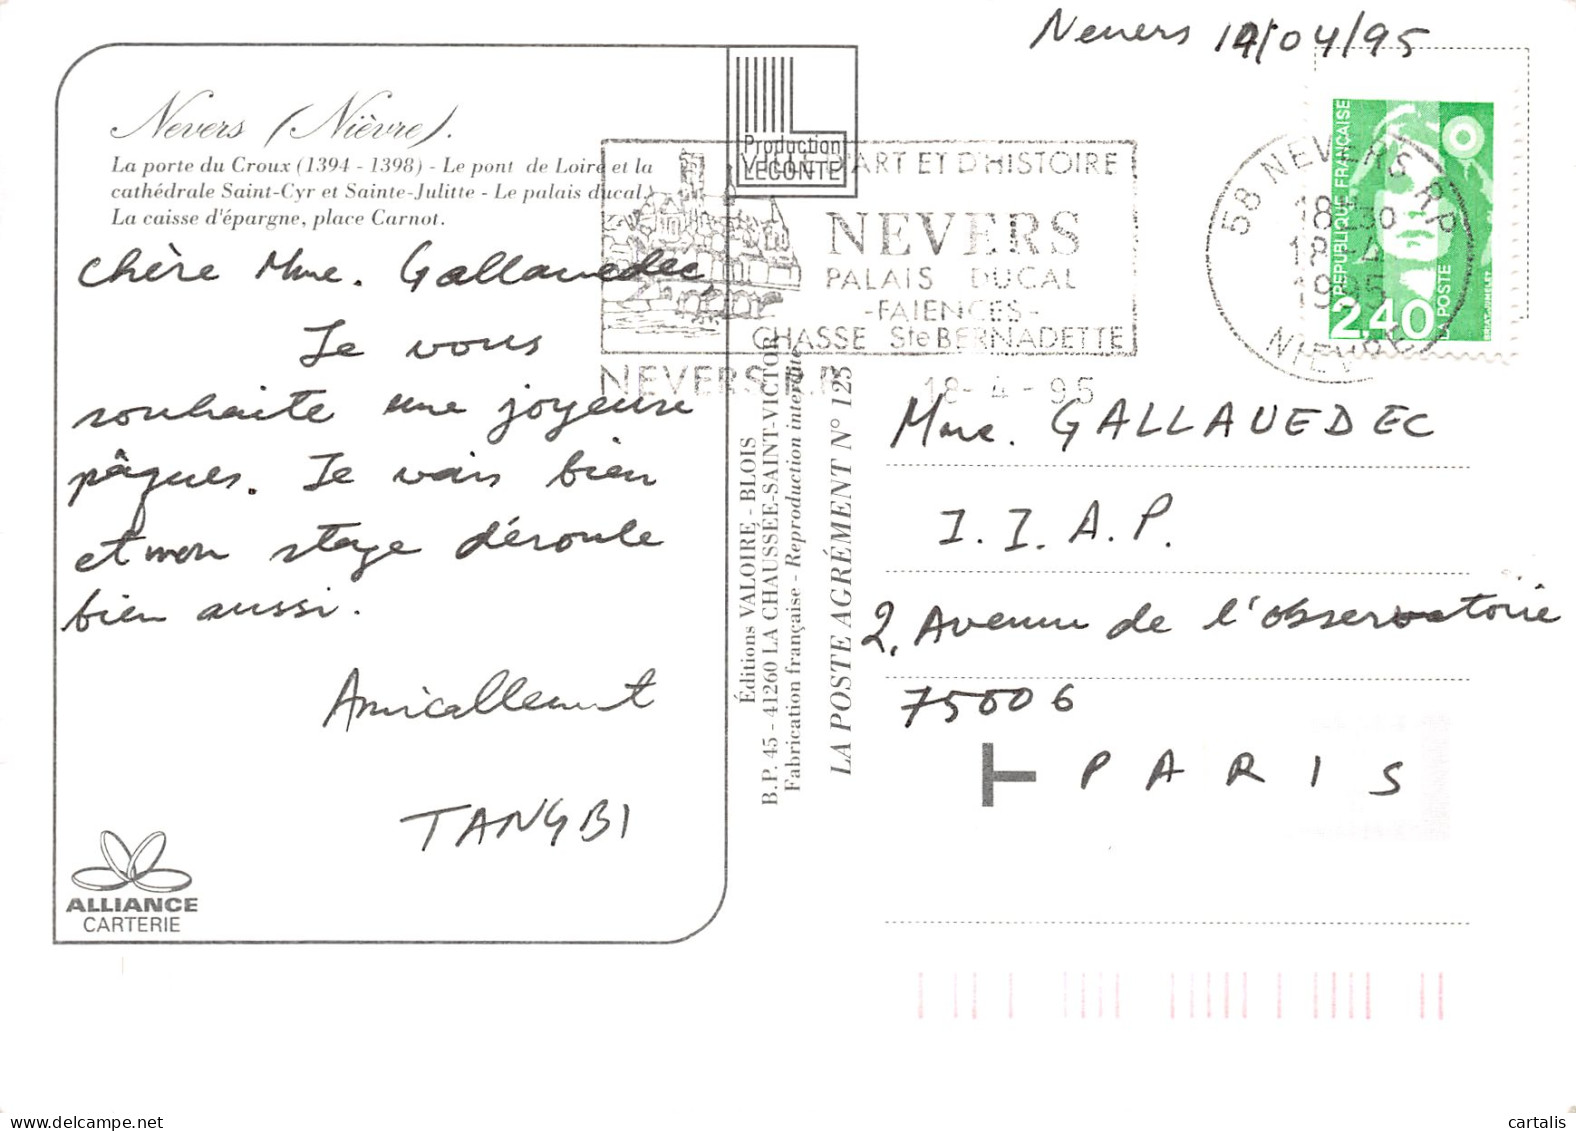 Nevers 14/04/95
Nevers (Nièvre).
La porte du Croux (1394 - 1398) - Le pont de Loire et la
cathédrale Saint-Cyr et Sainte-Julitte - Le palais ducal.
La caisse d'épargne, place Carnot.
chère Mme. Gallavedec,
Je vous
souhaite une joyeuse
pâques. Je vais bien
et mon stage déroule
bien aussi.
Amicallement
TANGBI
ALLIANCE
CARTERIE
Production
LECONTE
VILLE D'ART ET D'HISTOIRE
NEVERS
PALAIS DUCAL
-FAIENCES-
CHASSE Ste BERNADETTE
NEVERS R.P.
18-4-95
58 NEVERS RP
18H30
18-4
1995
NIEVRE
REPUBLIQUE FRANÇAISE
2,40
LA POSTE
Éditions VALOIRE - BLOIS
B.P. 45 - 41260 LA CHAUSSÉE-SAINT-VICTOR
Fabrication française - Reproduction interdite
LA POSTE AGRÉMENT N° 125
Mme. GALLAVEDEC
I.I.A.P.
2, Avenue de l'observatoire
75006
T
PARIS
cartalis